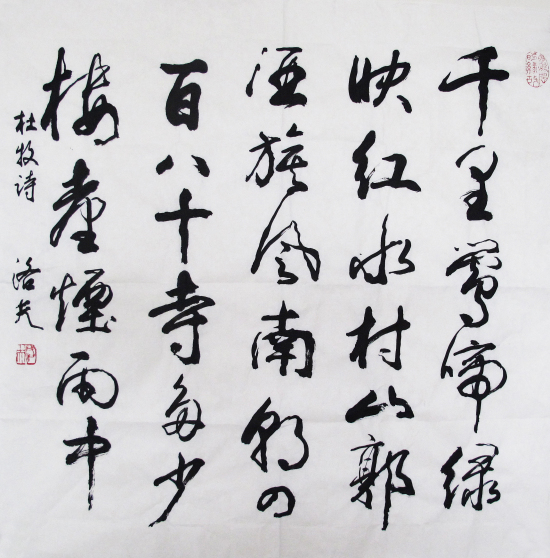 千里莺啼绿
映红水村山郭
酒旗风南朝四
百八十寺多少
楼台煙雨中
杜牧诗
洛夫